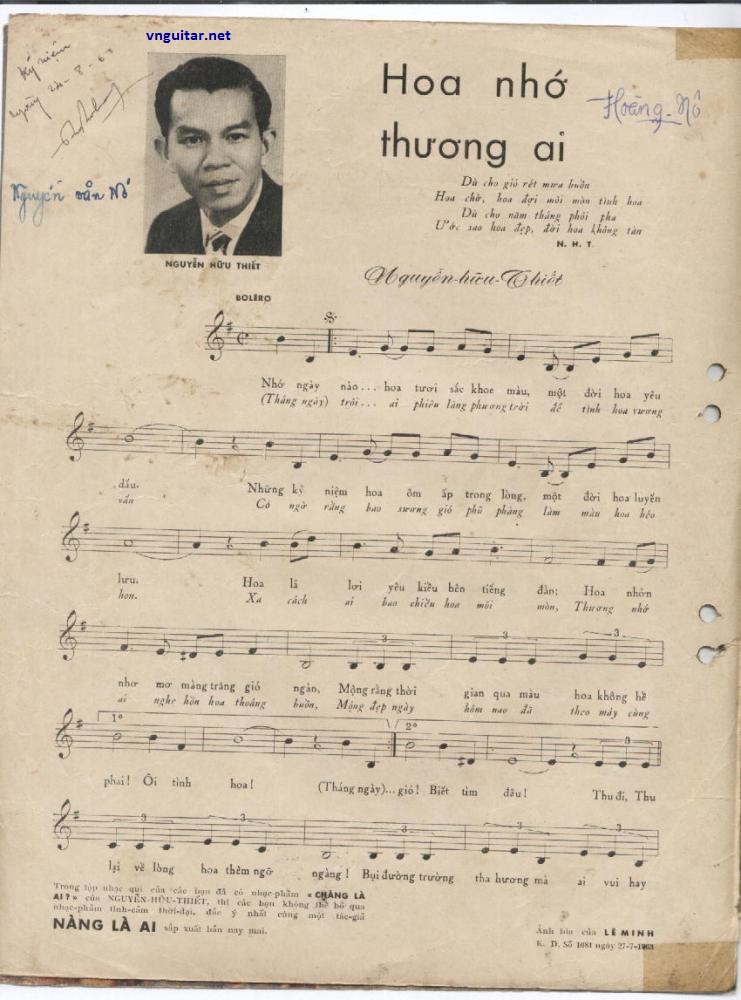 vnguitar.net
Kỷ niệm
ngày 24-8-63
Nguyễn văn Nô
NGUYỄN HỮU THIẾT
Hoa nhớ
thương ai
Hoàng-Nô
Dù cho gió rét mưa buồn
Hoa chờ, hoa đợi mỏi mòn tình hoa
Dù cho năm tháng phôi pha
Ước sao hoa đẹp, đời hoa không tàn
N. H. T.
Nguyễn-hữu-Thiết
BOLÉRO
Nhớ ngày nào... hoa tươi sắc khoe màu, một đời hoa yêu
(Tháng ngày) trôi... ai phiêu lãng phương trời để tình hoa vương
dấu. Những kỷ niệm hoa ôm ấp trong lòng, một đời hoa luyến
vấn Có ngờ rằng bao sương gió phũ phàng làm màu hoa héo
lưu. Hoa lả lơi yêu kiều bên tiếng đàn; Hoa nhởn
hon. Xa cách ai bao chiều hoa mỏi mòn, Thương nhớ
nhơ mơ màng trăng gió ngàn, Mộng rằng thời gian qua màu hoa không hề
ai nghe hồn hoa thoáng buồn, Mộng đẹp ngày hôm nao đã theo mây cùng
1º 2º
phai! Ôi tình hoa! (Tháng ngày)...gió! Biết tìm đâu! Thu đi, Thu
lại về lòng hoa thêm ngỡ ngàng! Bụi đường trường tha hương mà ai vui hay
Trong tập nhạc quí của các bạn đã có nhạc-phẩm «CHÀNG LÀ
AI?» của NGUYỄN-HỮU-THIẾT, thì các bạn không thể bỏ qua
nhạc-phẩm tình-cảm thời-đại, đắc ý nhất cùng một tác-giả
NÀNG LÀ AI sắp xuất bản nay mai.
Ảnh bìa của LÊ MINH
K. D. Số 1681 ngày 27-7-1963